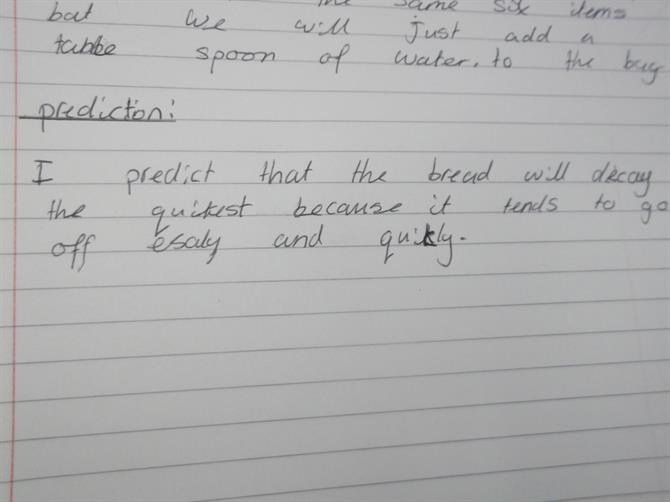 the same six items
bat we will just add a
table spoon of water. to the bag
prediction:
I predict that the bread will decay
the quickest because it tends to go
off esaly and quikly.